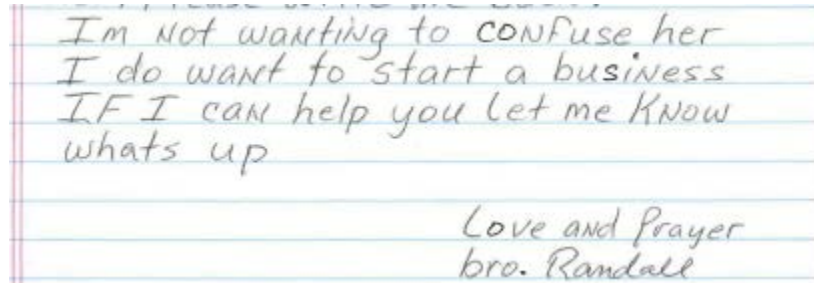 Please write me back.
Im Not wanting to confuse her
I do want to start a business
IF I can help you let me Know
whats up
Love and Prayer
bro. Randall